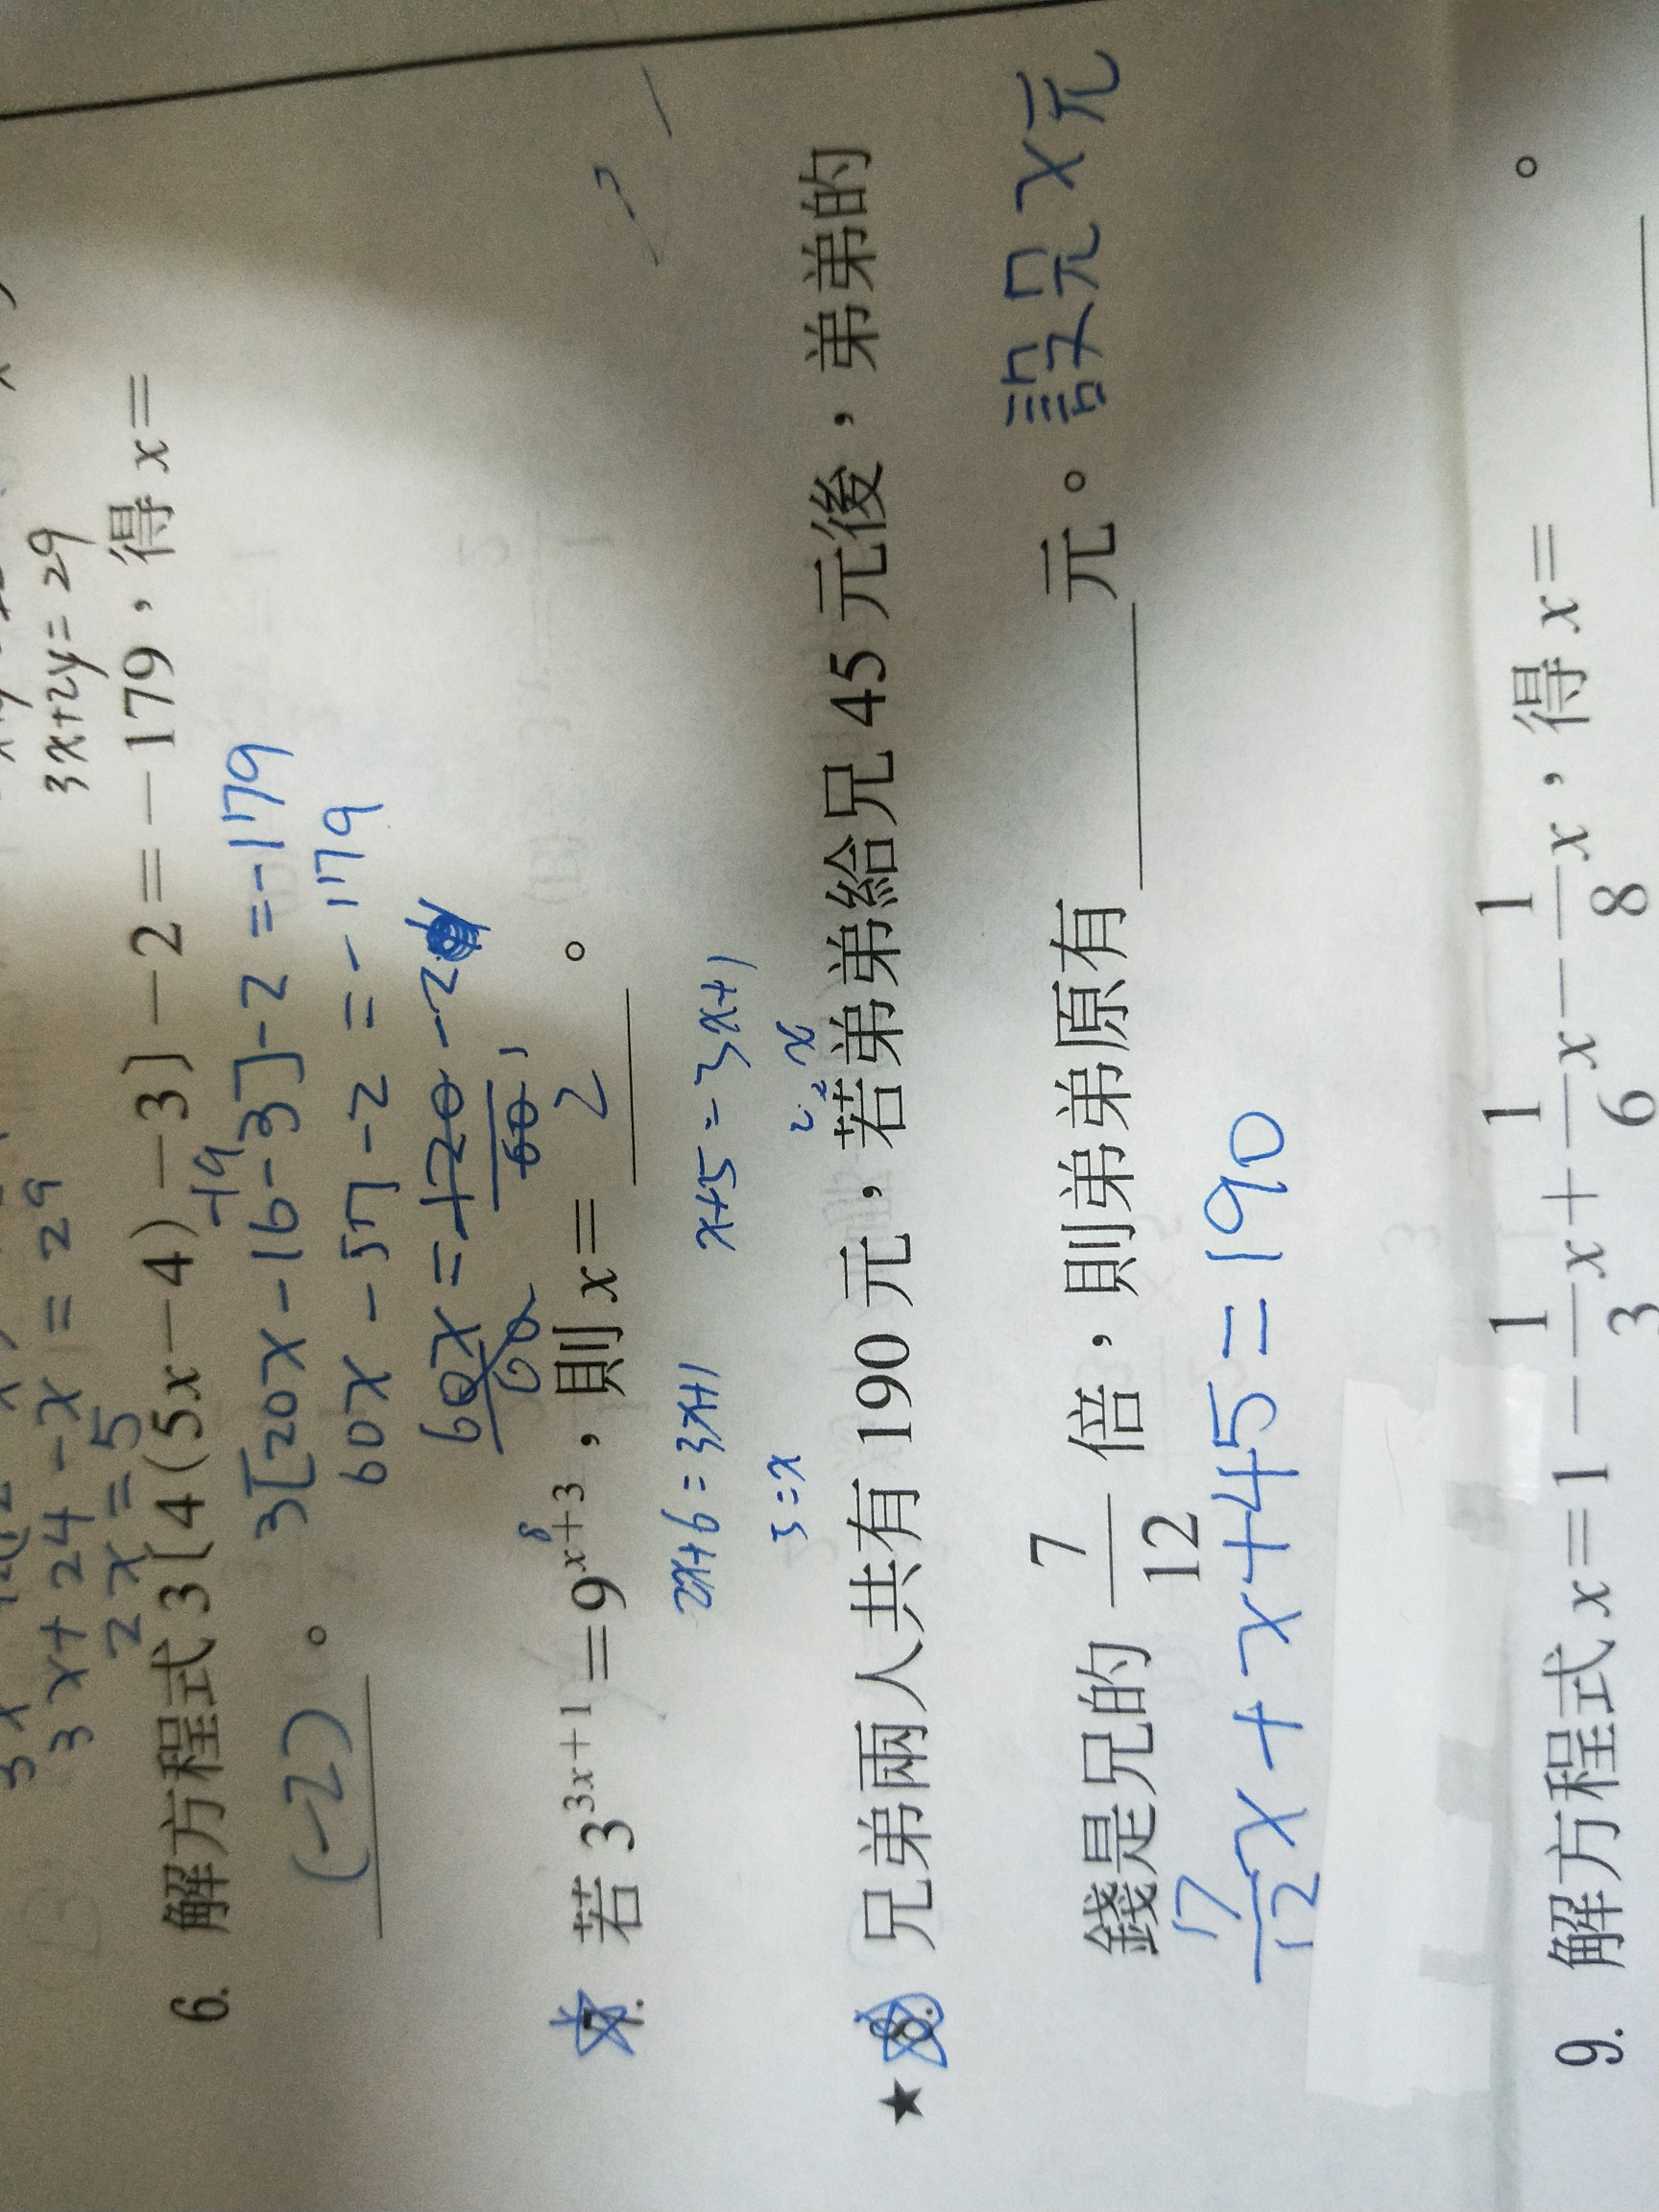 3x+2y=29
3x+24-x=29
2x=5
6. 解方程式 3[4(5x-4)-3]-2=-179，得 x=
(-2)。
-19
3[20x-16-3]-2=-179
60x-57-2=-179
60x=-120 -2
60 60 1
7. 若 3^{3x+1}=9^{x+3}，則 x= 2 。
8
2x+6=3x+1 x+5=3x+1
5=x 2=x
★8. 兄弟兩人共有 190 元，若弟弟給兄 45 元後，弟弟的
錢是兄的 7/12 倍，則弟弟原有 元。設兄x元
7/12 x+x+45=190
9. 解方程式 x=1-1/3 x+1/6 x-1/8 x，得 x= 。